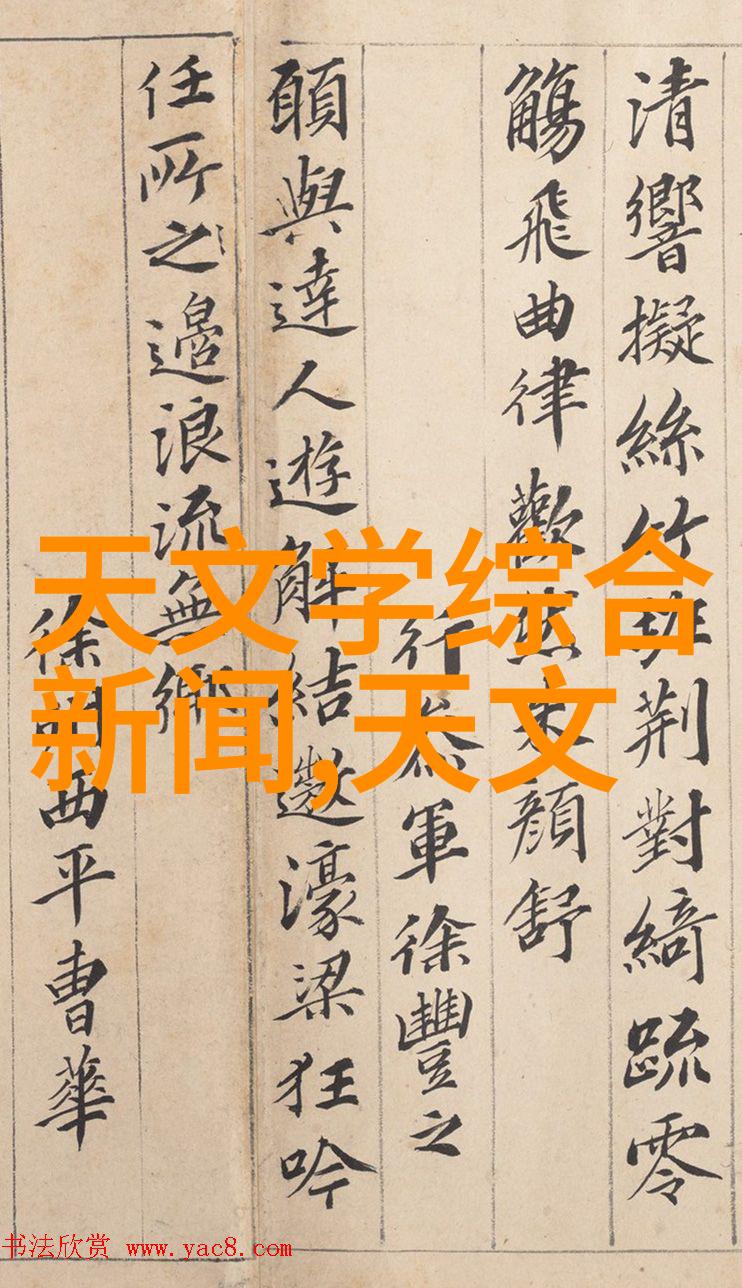 清響擬絲竹班荊對綺疏零
觴飛曲律歡然朱顏舒
行參軍徐豐之
願與達人遊解結遨濠梁狂吟
任所之邉浪流無鄉
徐州西平曹華
天文学综合
新闻,天文
书法欣赏 www.yac8.com